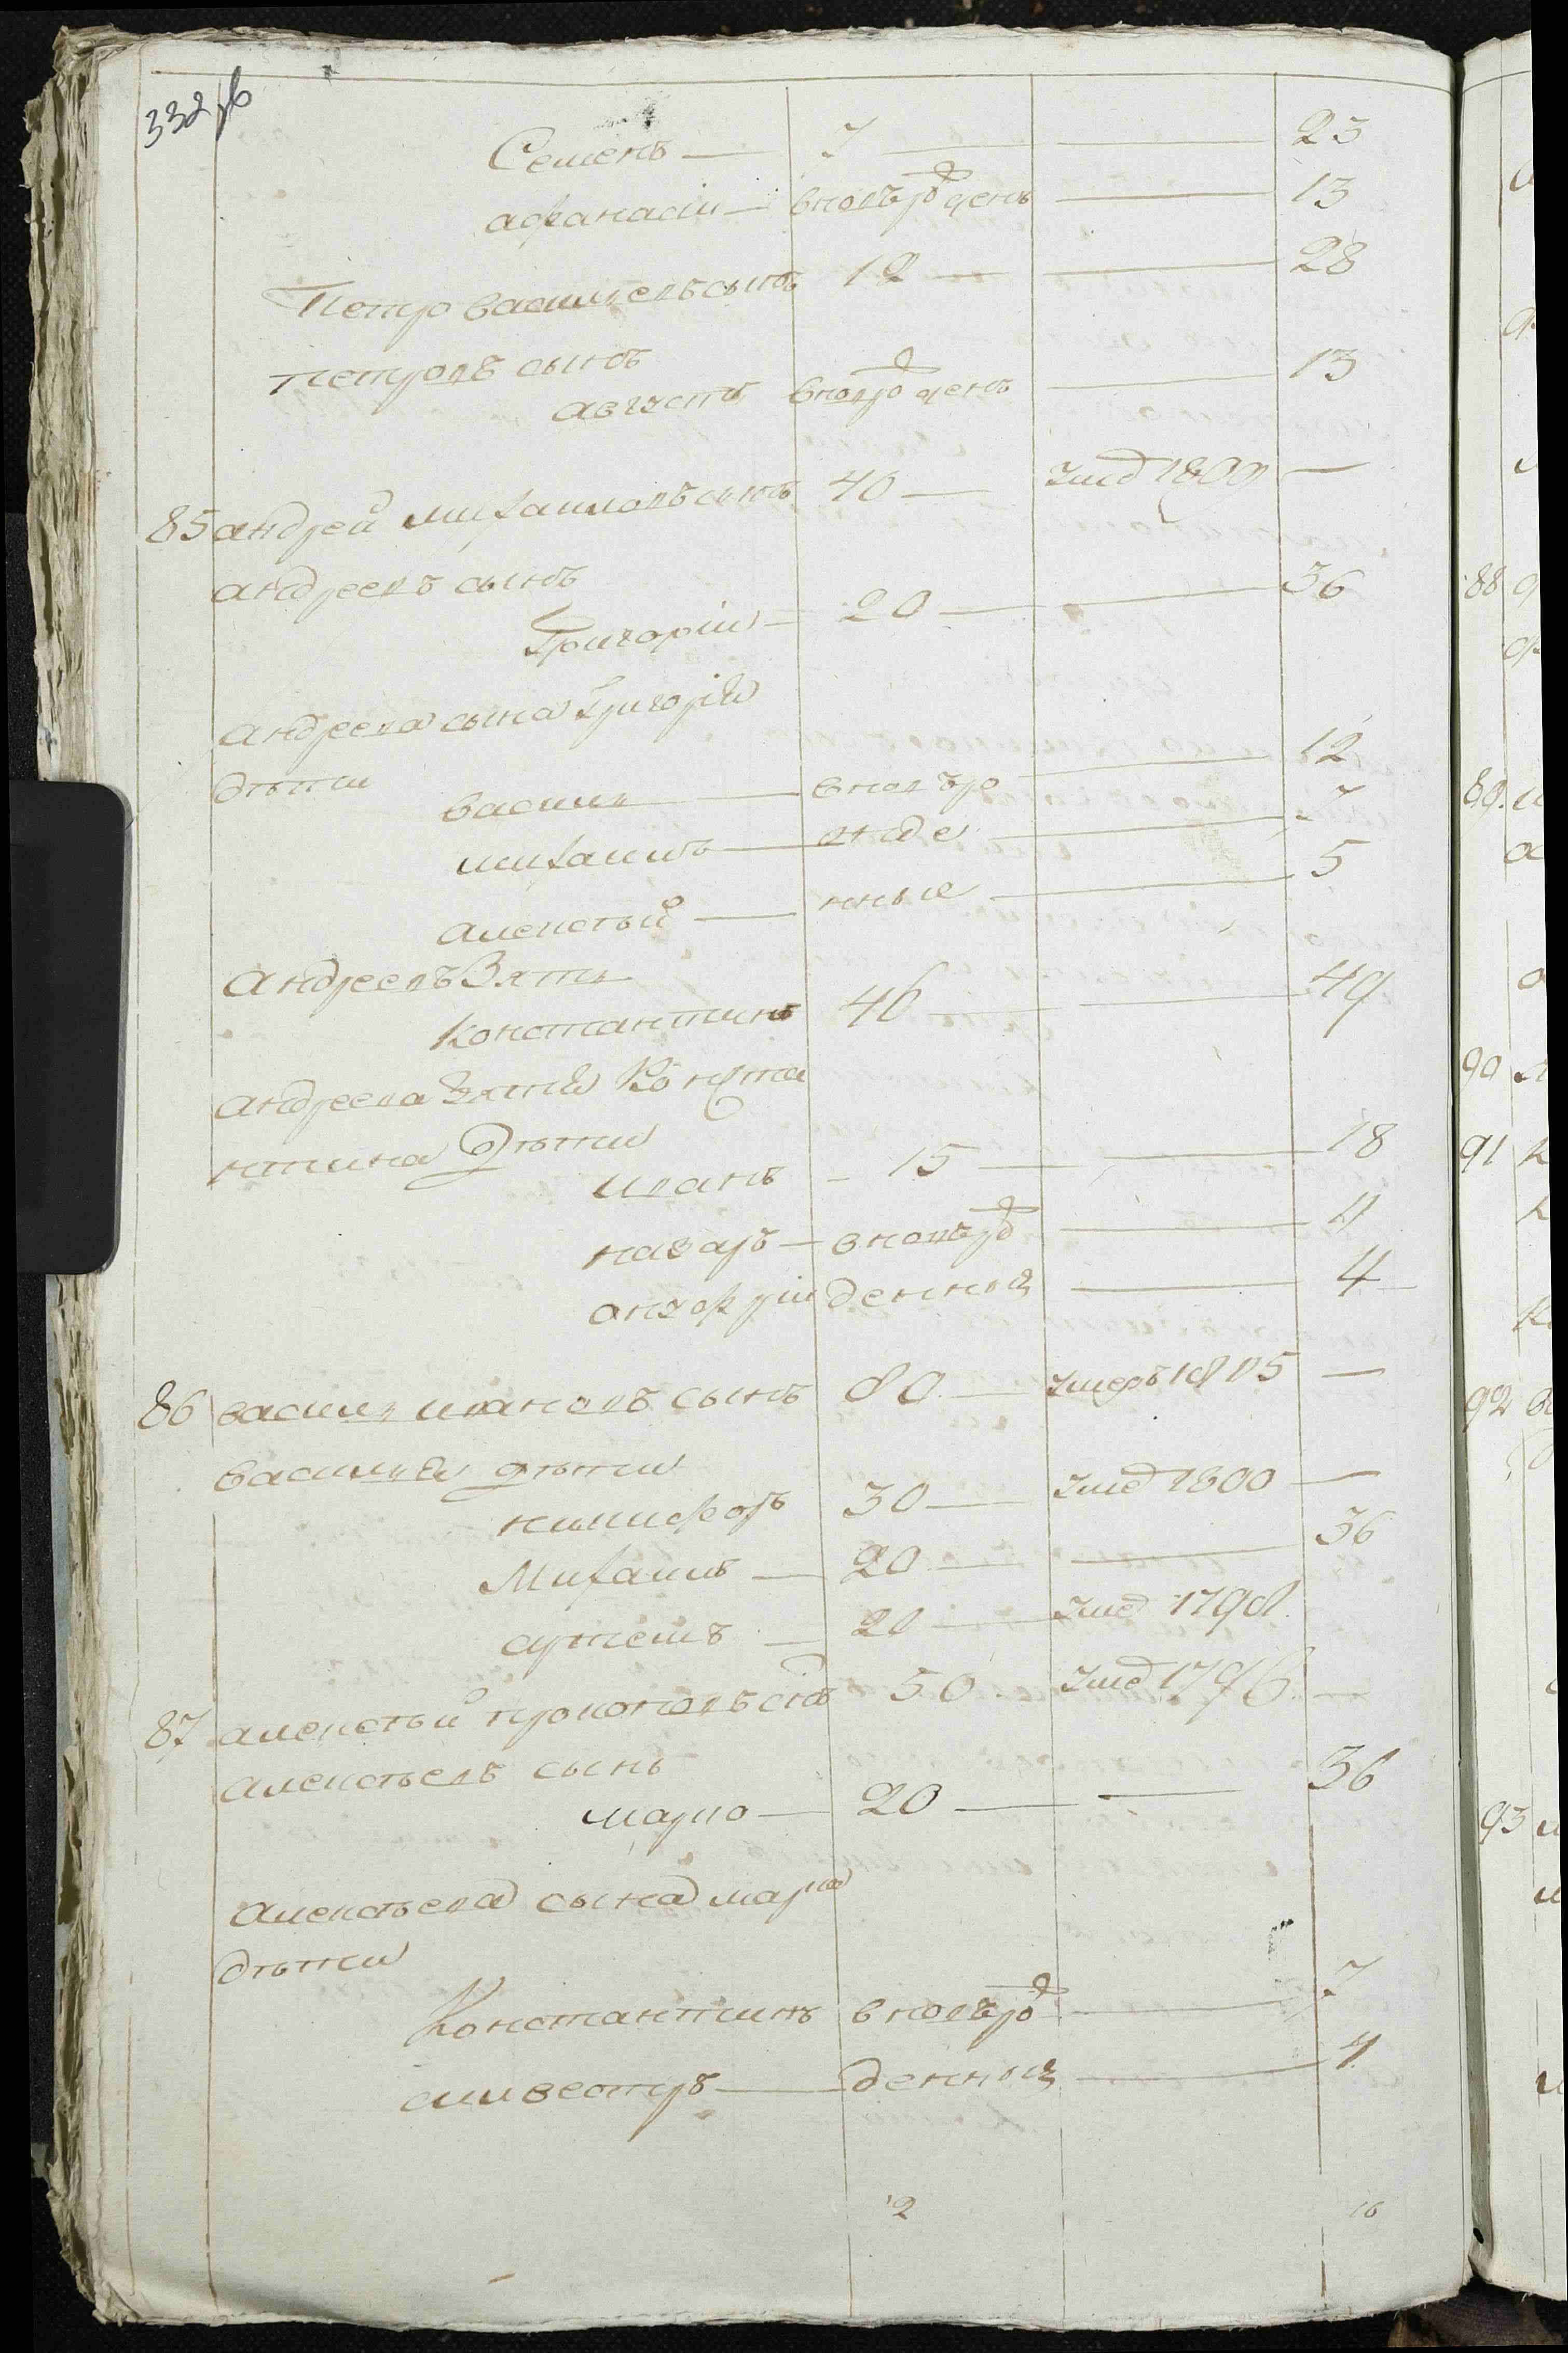 332об
Семенъ — 7 — — 23
афанасіи — вновьрожденъ — 13
Петръ васильевъ сынъ 12 — — 28
петровъ сынъ
августъ вноврожденъ — 13
85 андрей михаиловъ сынъ 40 — умер 1809 —
андреевъ сынъ
Григоріи — 20 — — 36
андреева сына Григорія
дѣти
василя — вновъро — 12
михаилъ — жде — 7
алексѣй — нные — 5
андреевъ Зять
Константинъ 46 — — 49
андреева зятя Конста
нтина дѣти
иванъ — 15 — — 18
назаръ — вновьрож — 11
онуфріи денныя — 4
86 василя ивановъ сынъ 80 — умеръ 1805 —
василія дѣти
никифоръ 30 — умер 1800 —
Михаилъ — 20 — — 36
артемъ — 20 — умер 1798
87 алексѣй прокопьевъ сынъ 50 умер 1796 —
алексѣевъ сынъ
марко — 20 — — 36
алексѣева сына марка
дѣти
Константинъ вновьрож — 7
силвестръ — денныя — 4
12 16
88
89
90
91
92
93